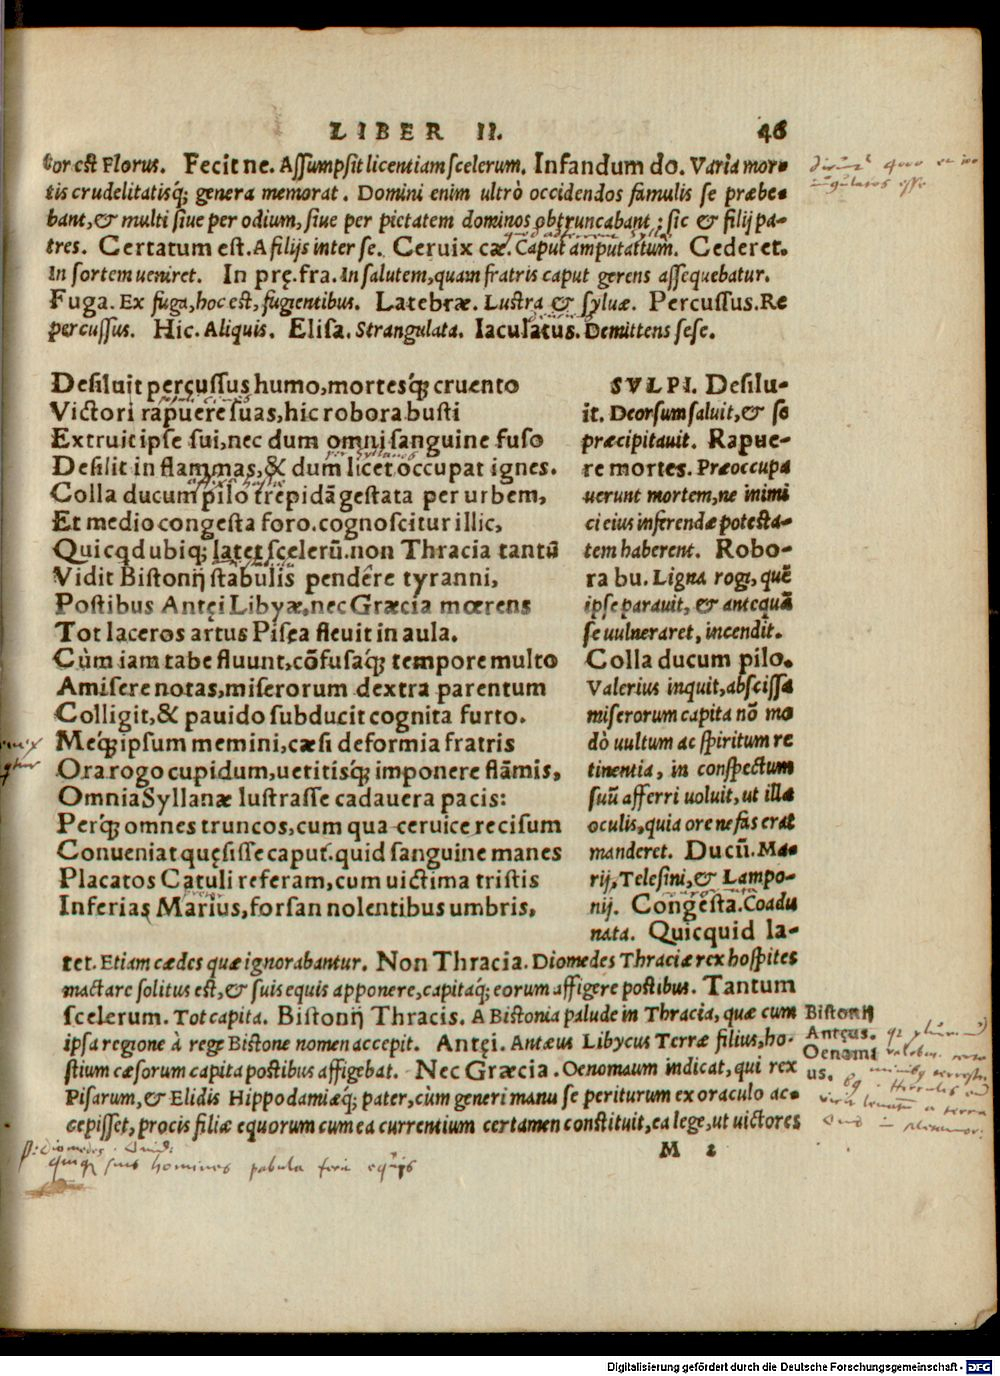 LIBER II. 46
tor est Florus. Fecit ne. Assumpsit licentiam scelerum. Infandum do. Varia mor-
tis crudelitatisq; genera memorat. Domini enim ultrò occidendos famulis se præbe-
bant, & multi siue per odium, siue per pietatem dominos obtruncabant: sic & filij pa-
tres. Certatum est. A filijs inter se. Ceruix cæ. Caput amputattum. Cederet.
In sortem ueniret. In prę. fra. In salutem, quam fratris caput gerens assequebatur.
Fuga. Ex fuga, hoc est, fugientibus. Latebræ. Lustra & syluæ. Percussus. Re
percussus. Hic. Aliquis. Elisa. Strangulata. Iaculatus. Demittens sese.
Desiluit percussus humo, mortesq; cruento
Victori rapuere suas, hic robora busti
Extruit ipse sui, nec dum omni sanguine fuso
Desilit in flammas, & dum licet occupat ignes.
Colla ducum pilo trepidā gestata per urbem,
Et medio congesta foro. cognoscitur illic,
Quicqd ubiq; latet scelerū. non Thracia tantū
Vidit Bistonij stabulis pendêre tyranni,
Postibus Antęi Libyæ, nec Græcia mœrens
Tot laceros artus Pisęa fleuit in aula.
Cùm iam tabe fluunt, cōfusaq; tempore multo
Amisere notas, miserorum dextra parentum
Colligit, & pauido subducit cognita furto.
Meq; ipsum memini, cæsi deformia fratris
Ora rogo cupidum, uetitisq; imponere flāmis,
Omnia Syllanæ lustrasse cadauera pacis:
Perq; omnes truncos, cum qua ceruice recisum
Conueniat quęsisse caput. quid sanguine manes
Placatos Catuli referam, cum uictima tristis
Inferias Marius, forsan nolentibus umbris,
SVLPI. Desilu-
it. Deorsum saluit, & se
præcipitauit. Rapue-
re mortes. Præoccupa
uerunt mortem, ne inimi
ci eius inferendæ potesta-
tem haberent. Robo-
ra bu. Ligna rogi, quē
ipse parauit, & antequā
se uulneraret, incendit.
Colla ducum pilo.
Valerius inquit, abscissa
miserorum capita nō mo
dò uultum ac spiritum re
tinentia, in conspectum
suū afferri uoluit, ut illa
oculis, quia ore nefas erat
manderet. Ducū. Ma-
rij, Telesini, & Lampo-
nij. Congesta. Coadu
nata. Quicquid la-
tet. Etiam cædes quæ ignorabantur. Non Thracia. Diomedes Thraciæ rex hospites
mactare solitus est, & suis equis apponere, capitaq; eorum affigere postibus. Tantum
scelerum. Tot capita. Bistonij Thracis. A Bistonia palude in Thracia, quæ cum
ipsa regione à rege Bistone nomen accepit. Antęi. Antæus Libycus Terræ filius, ho-
stium cæsorum capita postibus affigebat. Nec Græcia. Oenomaum indicat, qui rex
Pisarum, & Elidis Hippodamiæq; pater, cùm generi manu se periturum ex oraculo ac-
cepisset, procis filiæ equorum cum ea currentium certamen constituit, ea lege, ut uictores
Bistonij
Antęus.
Oenomi
us.
M 2
homines pabula feri equis